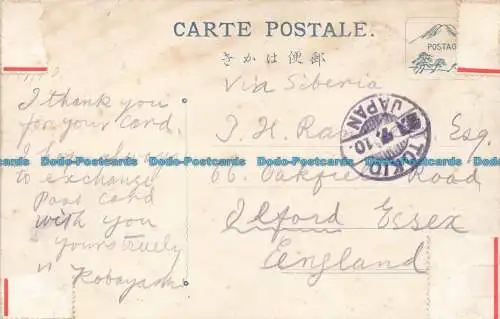 CARTE POSTALE.
きかは便郵
POSTAG
Via Siberia
I thank you
for your card.
to exchange
Post card
with you
yours truely
Kobayashi
J. H. Esq.
66. Oakfield Road
Ilford Essex
England
JAPAN
10.
TOKIO
Dodo-Postcards Dodo-Postcards Dodo-Postcards Dodo-Postcards Dodo-Postcards Dodo-Postcards